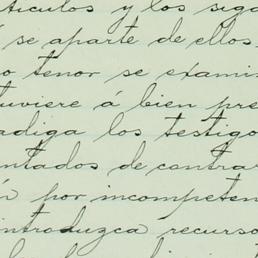 tículos y los siga
se aparte de ellos
o tenor se exami
tuviere á bien pre
adiga los testigo
ntados de contrar
n por incompeten
introduzca recurso